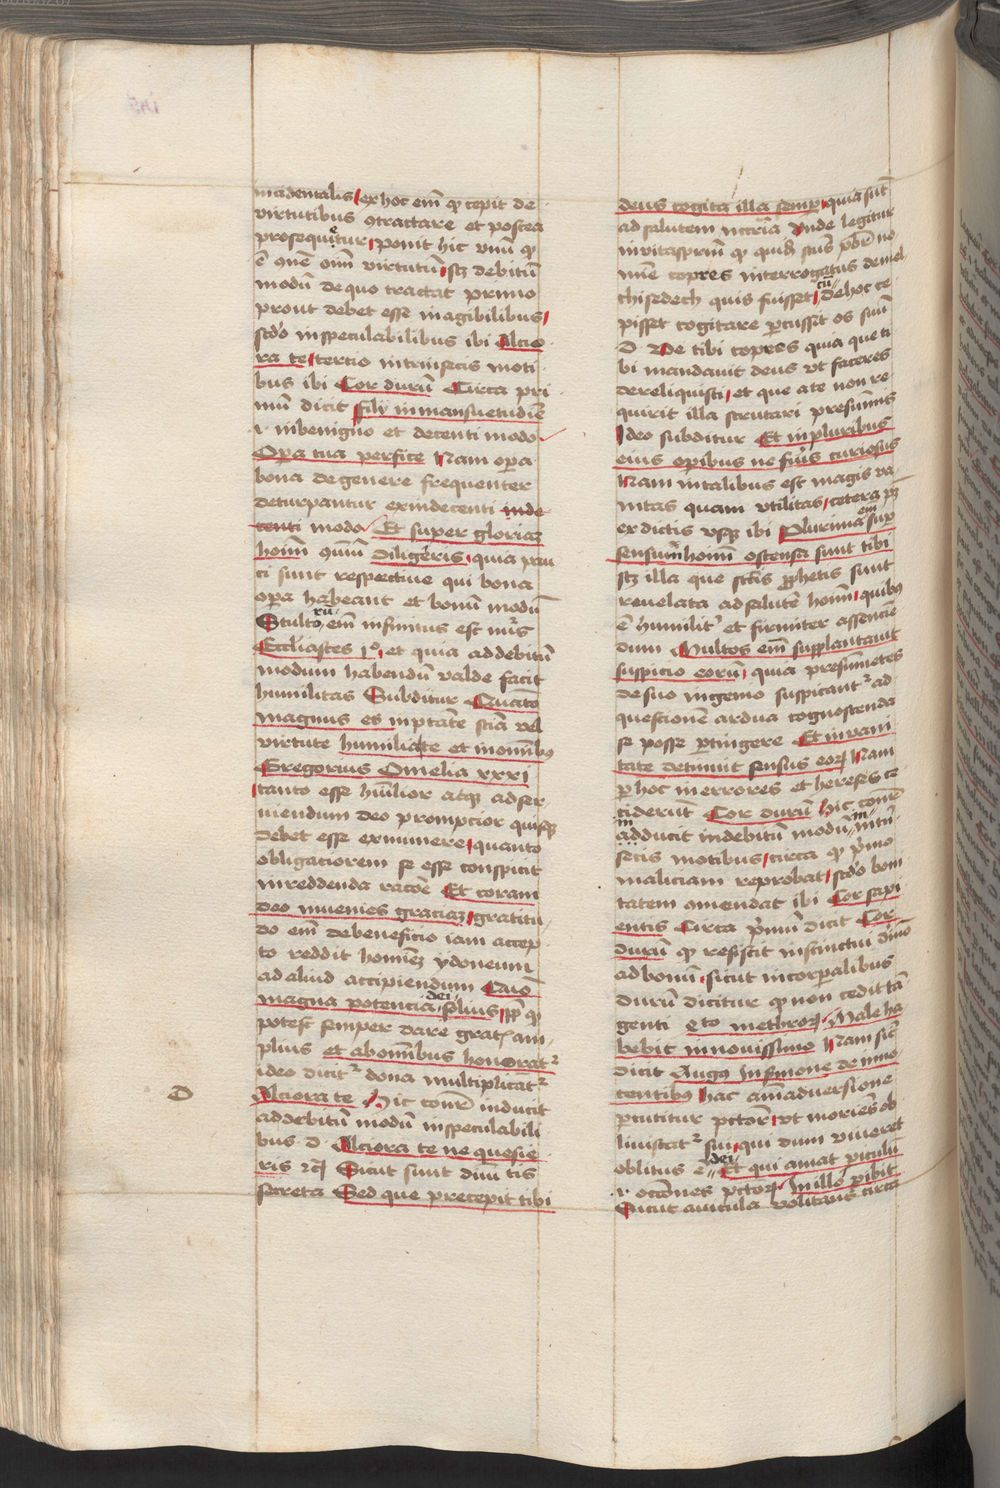 incidentalis ex hoc em̄ qd̕ cepit de
virtutibus 9tractare et postea
prosequitur ponit hic vnū qd̕
ē 9mē om̄i virtutū scz debitū
modū de quo tractat primo
prout debet esse in agibilibus
scd̕o in speculabilibus ibi Alcio
ra te tertio intrinsecis moti
bus ibi Cor durū Circa pri
mū dicit fili in mansuetudīe
.i. in benigno et decenti modo
Opera tua perfice Nam opera
bona de genere frequenter
deturpantur ex indecenti inde
centi modo Et super gloriaz
hoīm 9mūi diligeris quia pau
ci sunt respective qui bona
opera habeant et bonum modū
Stultorū em̄ infinitus est nūs
Eccliastes jo et quia ad debitū
modum habendū valde facit
humilitas Subditur Quāto
magnus es in ptāte sciā vel
virtute humilia te et in om̄ibus
Gregorius Omelia xxxi
tanto esse hūilior atqz ad ser
uiendum deo prompcior quisqz
debet esse ex munere quanto
obligaciorem se esse conspicit
in reddenda racōe Et coram
deo inuenies graciaz gratitu
do em̄ de beneficio iam accep
to reddit hominez ydoneum
ad aliud accipiendum Qm̄
magna potencia dei solius qd̕
potest semper dare gratiam
plius et ab om̄ibus honorat᷑
ideo dicit᷑ dona multiplicat᷑
D
Alciora te Hic cōnr̄ inducit
ad debitū modū in speculabili
bus d. Alciora te ne quesie
ris rc̄ Sicut sunt diuītis
secreta Sed que precepit tibi
deus cogita illa semper quia sūt
ad salutem nccāria Vnde legitur
in vitaspr̄m qd̕ quidā scūs pater no
mīe copres interrogatus de mel
chisedech quis fuisset cū de hoc ce
pisset cogitare percussit os suū
d. Ve tibi copres quia que ti
bi mandauit deus vt faceres
dereliquisti et que a te non re
quirit illa scrutari presumis
Ideo subditur Et in pluribus
eius operibus ne fueris curiosus
Nam in talibus est magis va
nitas quam vtilitas cetera p̄z
ex dictis vsqz ibi Plurima em̄ sup
sensum hoīm ostensa sunt tibi
scz illa que scīs prophetis sunt
reuelata ad salutē hoīm quibus
ē humilit᷑ et firmiter assencīe
dum Multos em̄ supplantauit
suspicio eorū quia presumētes
de suo ingenio suspicant᷑ ad
questionē ardua cognoscenda
se posse pertingere Et in vani
tate detinuit sensus eoꝝ Nam
per hoc in errores et hereses ce
ciderūt Cor durū Hic cōnr̄
adducit indebitū modū in intrī
secis motibus circa qd̕ prīmo
maliciam reprobat scd̕o boni
tatem cōmendat ibi Cor sapi
entis Circa prīmū dicit Cor
durū qd̕ resistit instinctui diuīo
ad bonū sicut in corporalibus
durū dicitur qd̕ non cedit tā
genti 4to metheoroꝝ Male ha
bebit in nouissimo Nam sic̄
dicit Augus in sermone de inno
centibus hac am̄aduersione
percutitur pctōr vt moriēs ob
liuiscat᷑ sui qui dum viueret
oblitus ē dei Et qui amat piculū
.i. occōnes pctōꝝ in illo peribit
Sicut auicula volitans circa